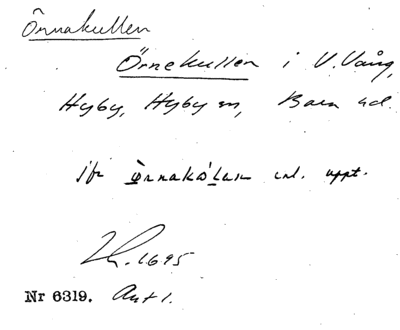 Örnakullen
Örnekullen i V. Vång,
Hyby, Hyby sn, Bara hd.
Jfr Örnakålan enl. uppt.
1695
Nr 6319. Ant 1.